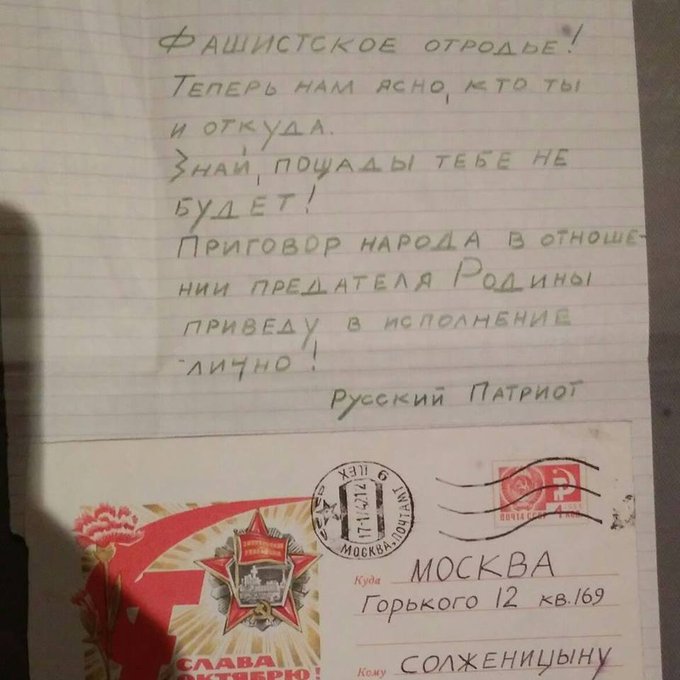 Фашистское отродье!
Теперь нам ясно, кто ты
и откуда.
Знай, пощады тебе не
будет!
Приговор народа в отноше-
нии предателя Родины
приведу в исполнение
лично!
Русский Патриот
МОСКВА, ПОЧТАМТ
ПОЧТА СССР 4 КОП.
Куда МОСКВА
Горького 12 кв.169
СЛАВА
ОКТЯБРЮ!
Кому СОЛЖЕНИЦЫНУ